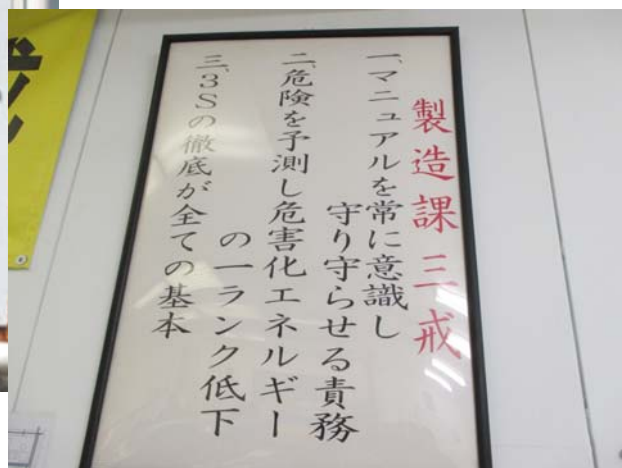 製造課三戒
一、マニュアルを常に意識し
守り守らせる責務
二、危険を予測し危害化エネルギー
の一ランク低下
三、3Sの徹底が全ての基本